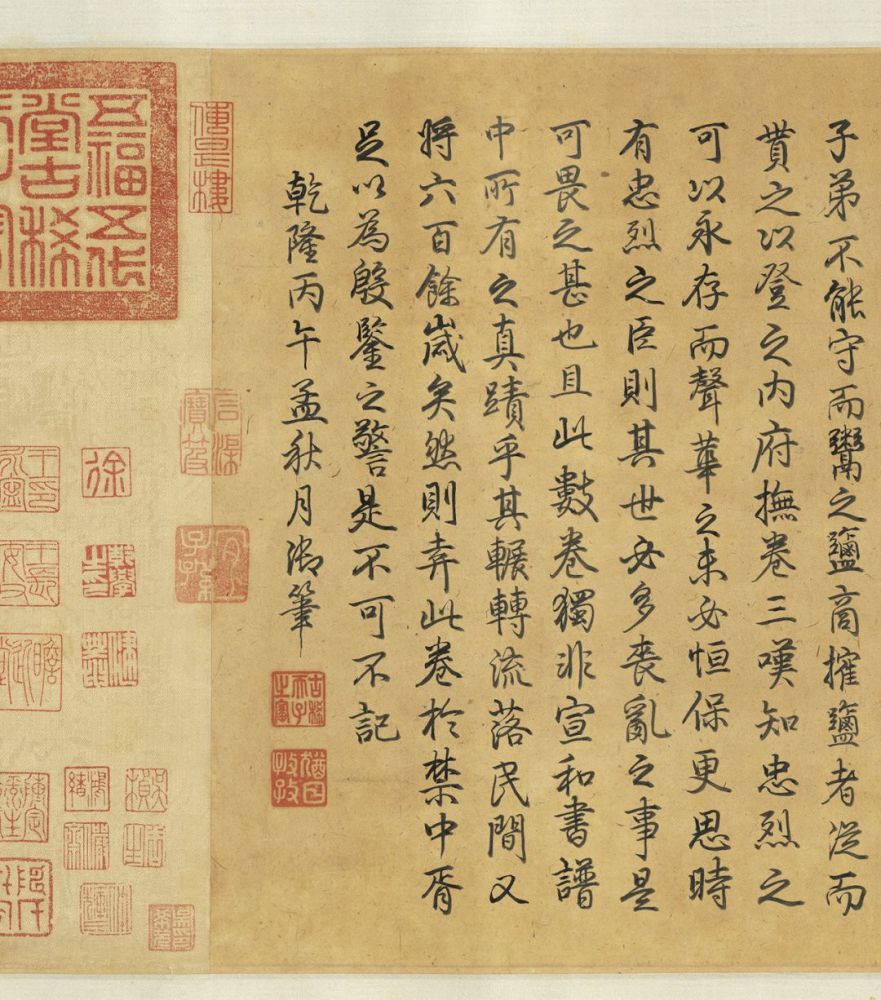 子弟不能守而鬻之鹽商擢鹽者從而
貰之以登之内府撫卷三嘆知忠烈之
可以永存而聲華之未必恒保更思時
有忠烈之臣則其世必多喪亂之事是
可畏之甚也且此數卷獨非宣和書譜
中所有之真蹟乎其輾轉流落民間又
將六百餘歲矣然則弆此卷於禁中胥
足以為殷鑒之警是不可不記
乾隆丙午孟秋月御筆
古稀天子之寶
猶日孜孜
僊是樓
五福五代
堂古稀
徐